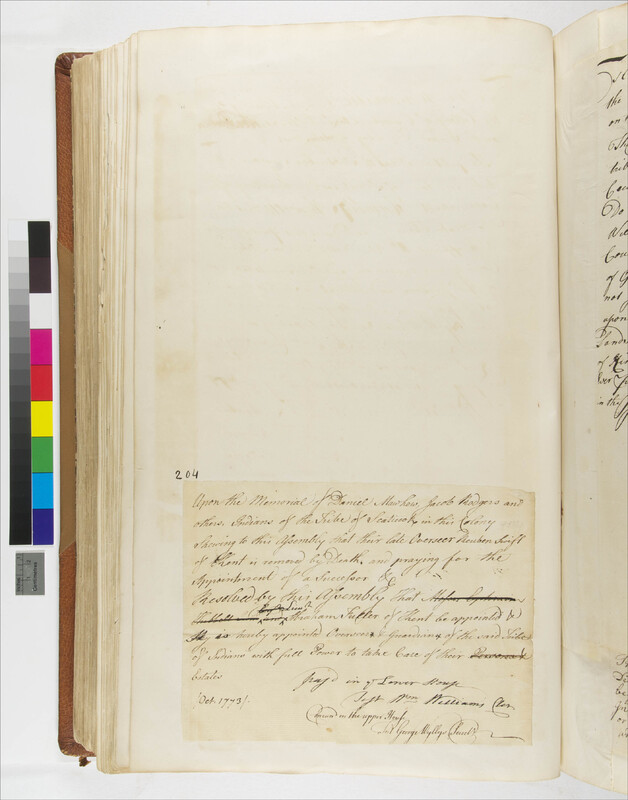 204
Upon the Memorial of Daniel Mawhew, Jacob Rodgers and
others, Indians of the Tribe of Scaticook, in this Colony
shewing to this Assembly that their late Overseer Reuben Swift
of Kent is removed by Death, and praying for the
Appointment of a Successor &c
Resolved by this Assembly that
and Abraham Fuller of Kent be appointed &
is hereby appointed Overseer & Guardian of the said Tribe
of Indians with full Power to take Care of their
Estates
pass'd in ye Lower House
Test Wm Williams Cler.
Oct. 1773
in the upper House
Test George Wyllys Secrety
the
on
of
not
upon
in the